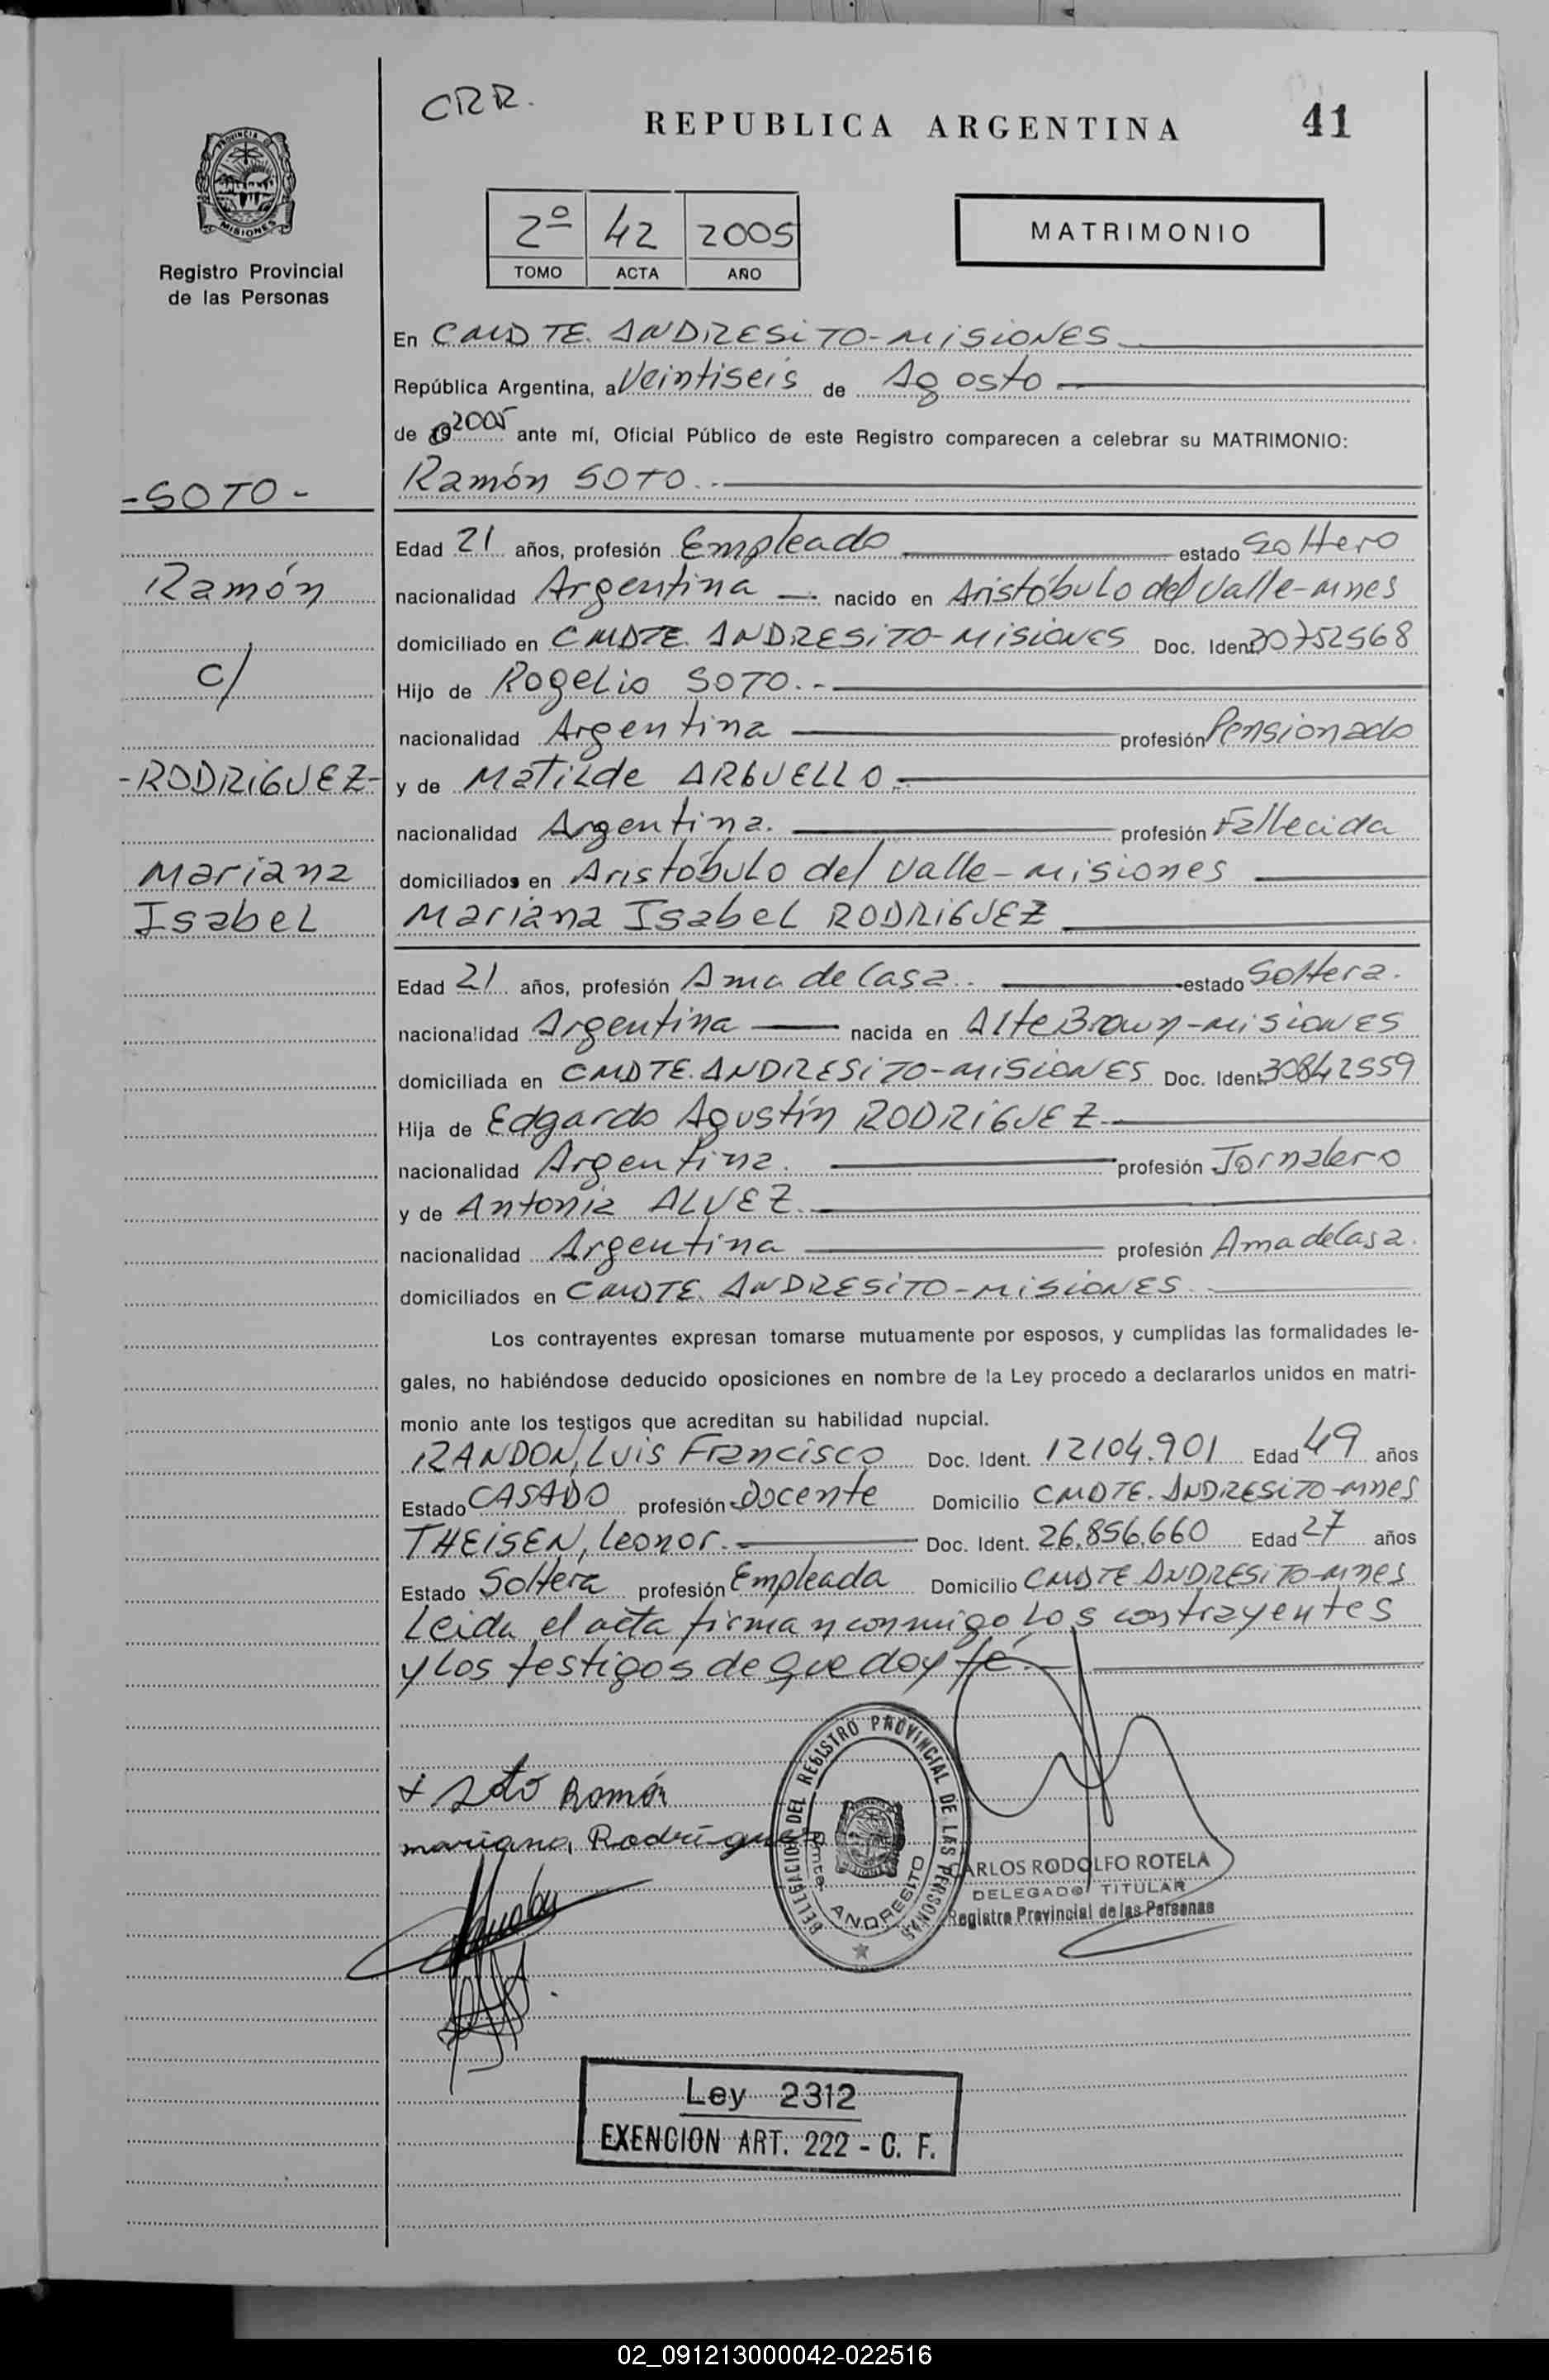 CRR.
REPUBLICA ARGENTINA
41
PROVINCIA DE
MISIONES
Registro Provincial
de las Personas
2º 42 2005
TOMO ACTA AÑO
MATRIMONIO
En CMDTE. ANDRESiTO-MiSiONES
República Argentina, a Veintiseis de Agosto
de 19 2005 ante mí, Oficial Público de este Registro comparecen a celebrar su MATRIMONIO:
-SOTO-
Ramón SOTO.-
Edad 21 años, profesión Empleado estado Soltero
Ramón
nacionalidad Argentina nacido en Aristóbulo del Valle-Mnes
domiciliado en CMDTE. ANDRESiTO-MiSiONES Doc. Ident. 30752568
c/
Hijo de Rogelio SOTO.-
nacionalidad Argentina profesión Pensionado
-RODRiGUEZ-
y de Matilde ARGUELLO.-
nacionalidad Argentina. profesión Fallecida
Mariana
domiciliados en Aristóbulo del Valle-Misiones
Isabel
Mariana Isabel RODRiGUEZ
Edad 21 años, profesión Ama de Casa.. estado Soltera.
nacionalidad Argentina nacida en Alte Brown-MiSiONES
domiciliada en CMDTE. ANDRESiTO-MiSiONES Doc. Ident. 30842559
Hija de Edgardo Agustín RODRiGUEZ.-
nacionalidad Argentina. profesión Jornalero
y de Antonia ALVEZ.
nacionalidad Argentina profesión Ama de Casa.
domiciliados en CMDTE. ANDRESiTO-MiSiONES.
Los contrayentes expresan tomarse mutuamente por esposos, y cumplidas las formalidades le-
gales, no habiéndose deducido oposiciones en nombre de la Ley procedo a declararlos unidos en matri-
monio ante los testigos que acreditan su habilidad nupcial.
RANDON, Luis Francisco Doc. Ident. 12104.901 Edad 49 años
Estado CASADO profesión Docente Domicilio CMDTE. ANDRESiTO-Mnes
THEiSEN, Leonor.- Doc. Ident. 26.856.660 Edad 27 años
Estado Soltera profesión Empleada Domicilio CMDTE ANDRESiTO-Mnes
Leida el acta firman conmigo los contrayentes
y los testigos de que doy fé.-
+ Soto Ramón
mariana Rodríguez
DELEGACION DEL REGISTRO PROVINCIAL DE LAS PERSONAS
Cmte. ANDRESITO
CARLOS RODOLFO ROTELA
DELEGADO TITULAR
Registro Provincial de las Personas
Ley 2312
EXENCION ART. 222 - C. F.
02_091213000042-022516